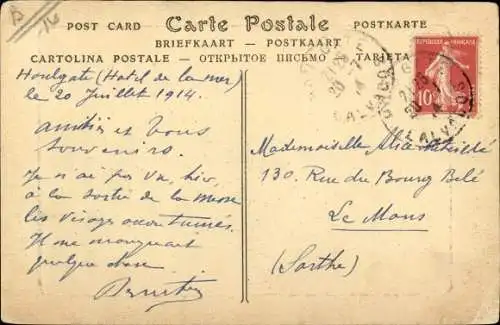 B 14
POST CARD Carte Postale POSTKARTE
BRIEFKAART - POSTKAART
CARTOLINA POSTALE - ОТКРЫТОЕ ПИСЬМО - TARJETA
REPUBLIQUE FRANÇAISE
10
CALVADOS
Houlgate (Hotel de la mer)
le 20 Juillet 1914.
amitiés et bons
souvenirs.
Je n'ai pas vu, hier,
à la sortie de la messe
les visages accoutumés.
Il me manquait
quelque chose
Mademoiselle Alice
130, Rue du Bourg Belé
Le Mans
(Sarthe)